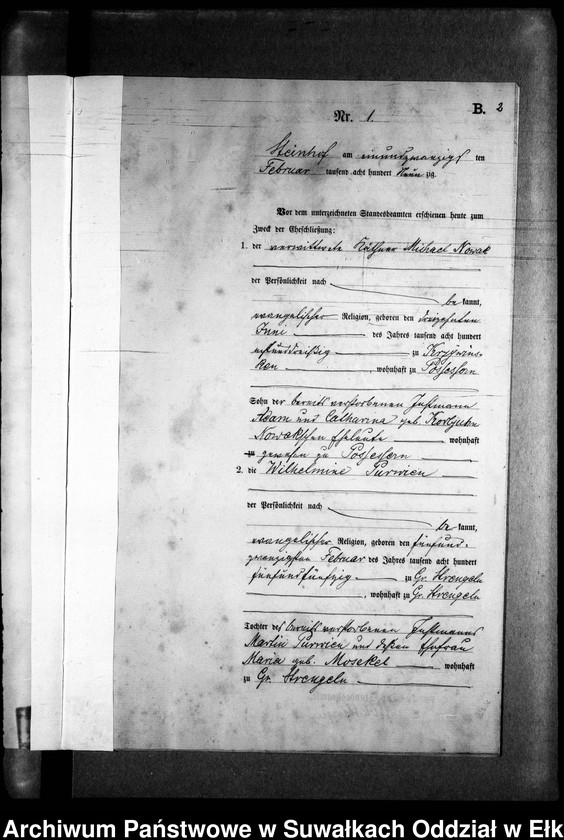 B. 2
Nr. 1.
Steinhof am einundzwanzigs ten
Februar tausend acht hundert Neun zig.
Vor dem unterzeichneten Standesbeamten erschienen heute zum
Zweck der Eheschließung:
1. der verwittwete Käthner Michael Nowak
der Persönlichkeit nach
be kannt,
evangelischer Religion, geboren den dreizehnten
Juni des Jahres tausend acht hundert
achtunddreißig zu
ken, wohnhaft zu Possessern
Sohn der bereits verstorbenen Instmann
Adam und Catharina geb.
Nowakschen Eheleute wohnhaft
zu gewesen zu Possessern
2. die Wilhelmine Purwien
der Persönlichkeit nach
be kannt,
evangelischer Religion, geboren den fünfund-
zwanzigsten Februar des Jahres tausend acht hundert
fünfundfünfzig zu Gr. Strengeln
, wohnhaft zu Gr. Strengeln
Tochter des bereits verstorbenen Instmanns
Martin Purwien und dessen Ehefrau
Maria geb. Mosekel wohnhaft
zu Gr. Strengeln
Archiwum Państwowe w Suwałkach Oddział w Ełk